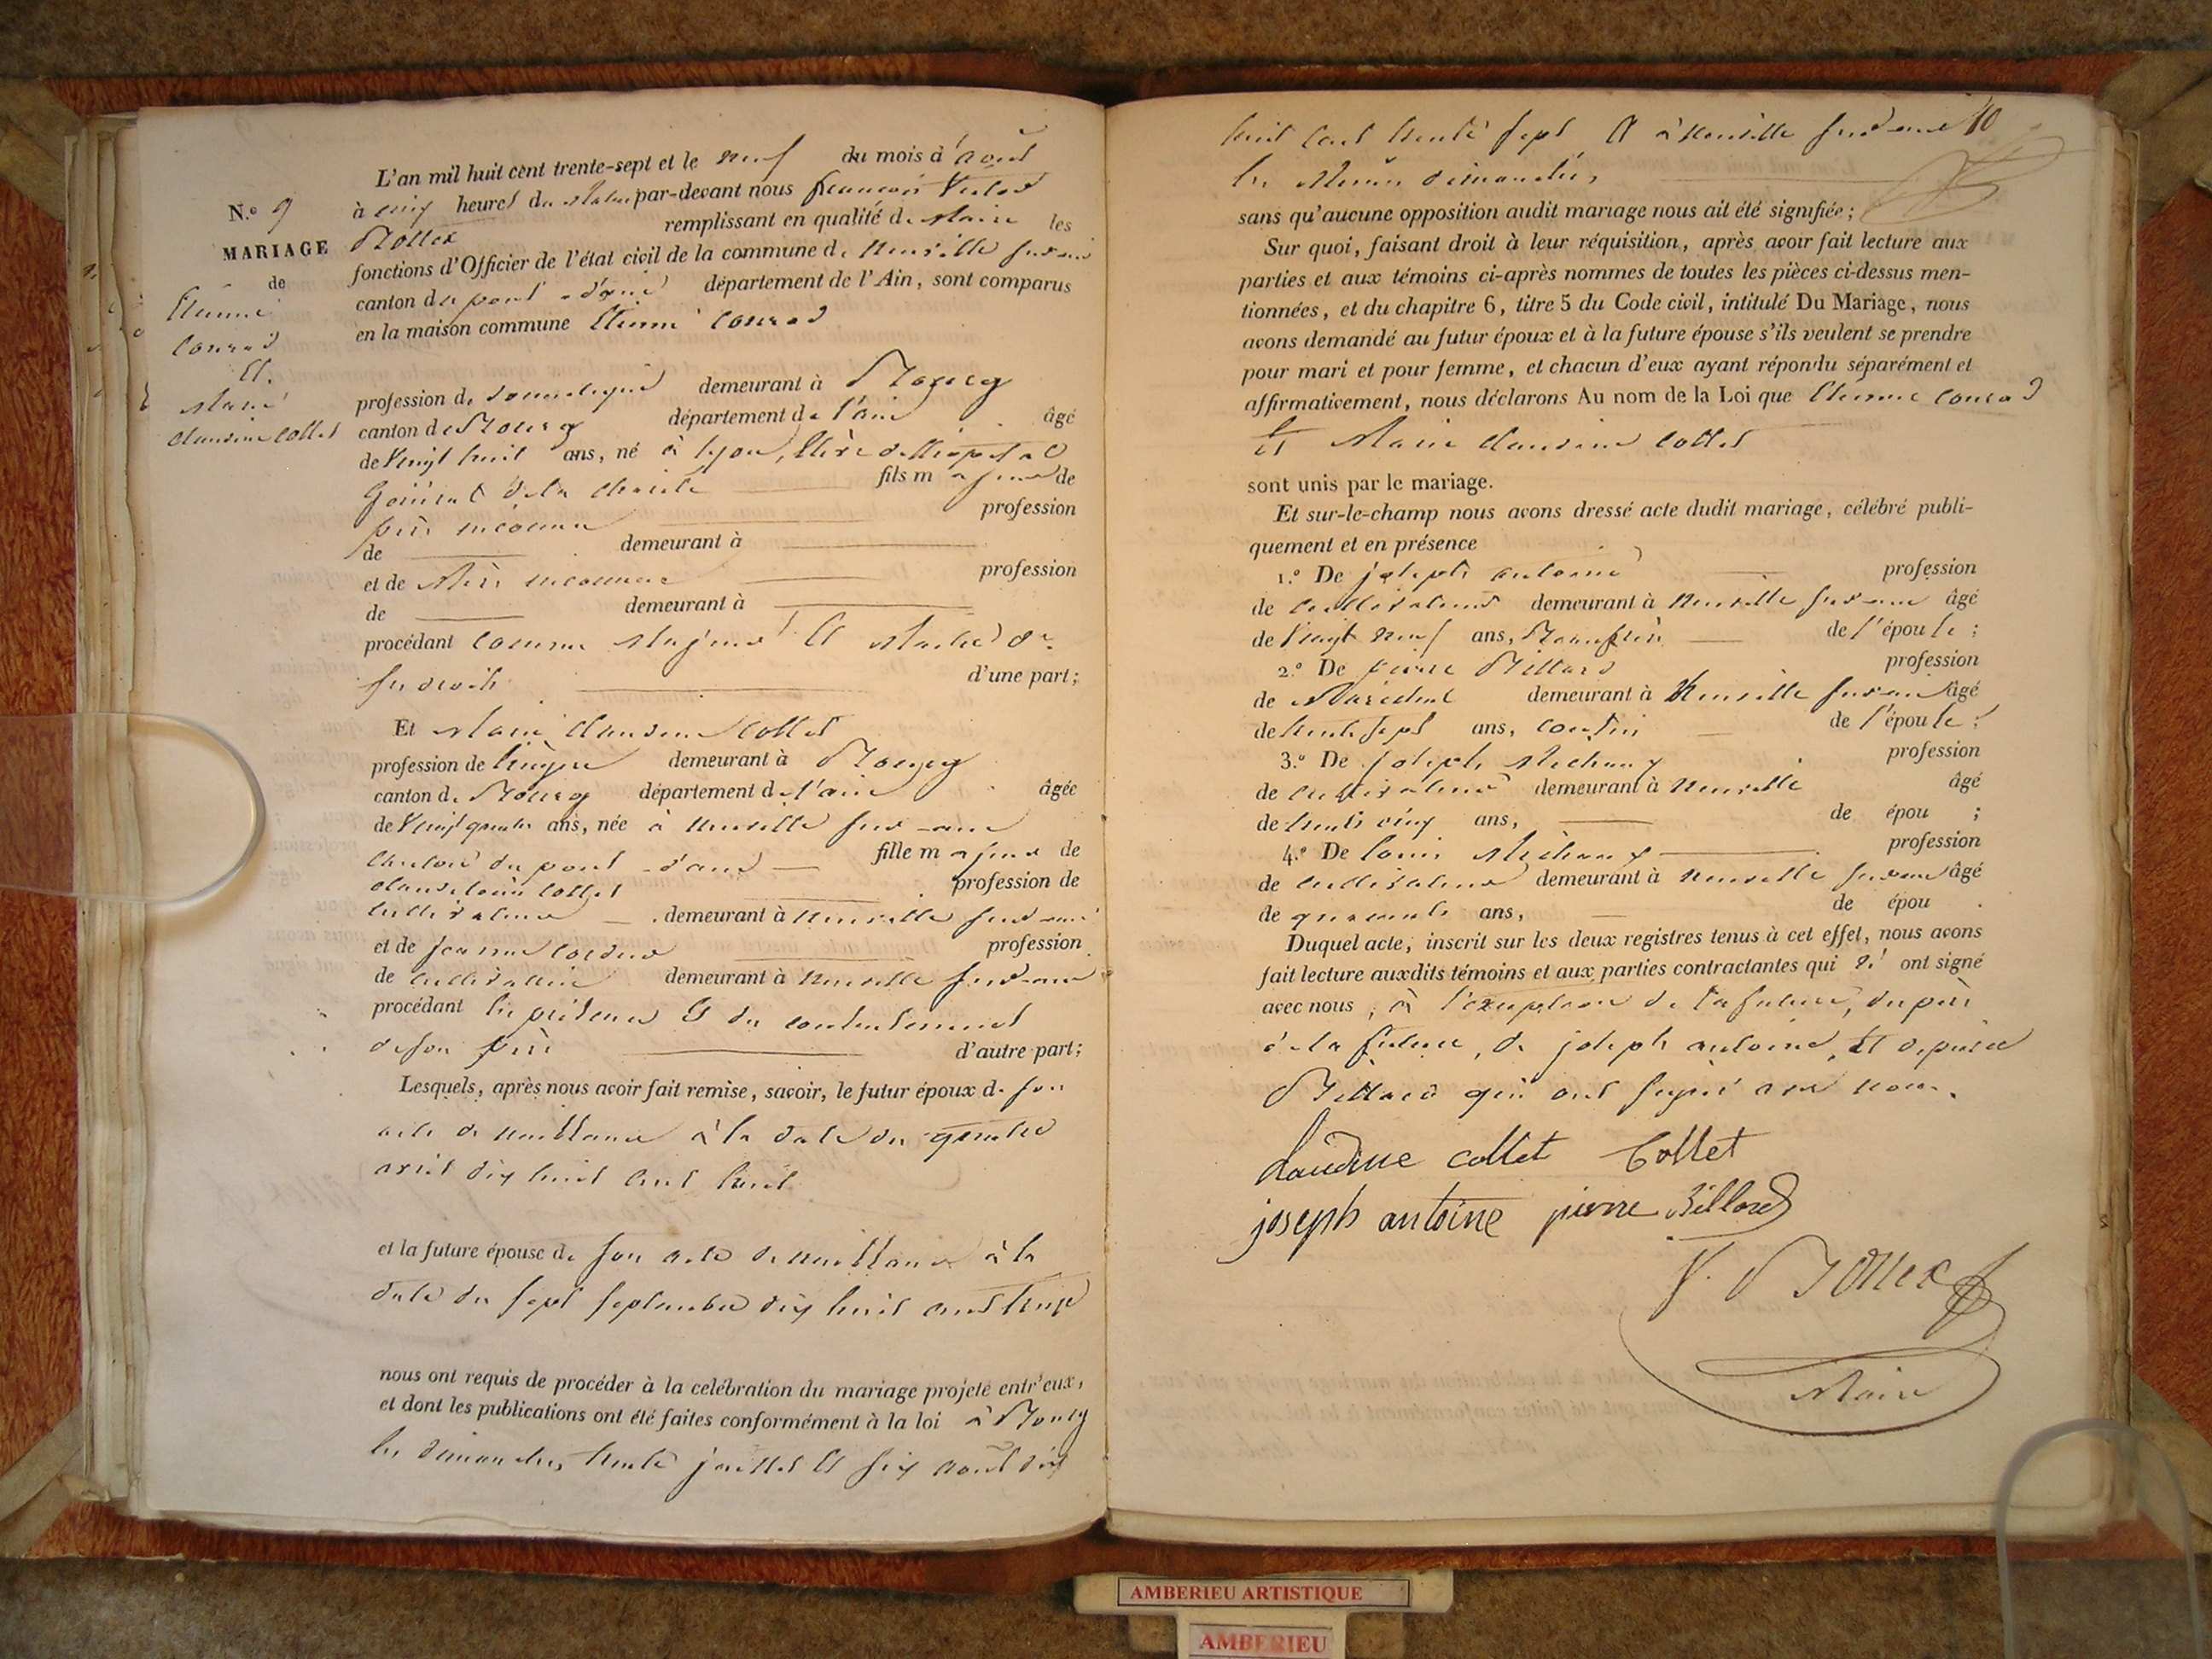 N.º 9
MARIAGE
de
Etienne
Conrad
Et
Marie
Claudine Collet
L'an mil huit cent trente-sept et le neuf du mois d'août
à cinq heures du Matin par-devant nous françois Victor
Bottex remplissant en qualité de Maire les
fonctions d'Officier de l'état civil de la commune de Neuville sur ain
canton du pont d'ain département de l'Ain, sont comparus
en la maison commune Etienne Conrad
profession de domestique demeurant à Bourg
canton de Bourg département de l'ain âgé
de Vingt huit ans, né à lyon, Elève de l'hopital
Général de la Charité fils majeur de
père inconnu profession
de demeurant à
et de Mère inconnue profession
de demeurant à
procédant comme Majeur Et Maître de
ses droits d'une part;
Et Marie Claudine Collet
profession de lingère demeurant à Bourg
canton de Bourg département de l'ain âgée
de Vingt quatre ans, née à Neuville sur ain
canton du pont d'ain fille majeure de
Claude Collet profession de
cultivateur demeurant à Neuville sur ain
et de jeanne profession
de cultivatrice demeurant à Neuville sur ain
procédant En présence Et du consentement
de son père d'autre part;
Lesquels, après nous avoir fait remise, savoir, le futur époux de son
acte de naissance à la date du quatre
avril dix huit cent huit
et la future épouse de son acte de naissance à la
date du sept septembre dix huit cent treize
nous ont requis de procéder à la celébration du mariage projeté entr'eux,
et dont les publications ont été faites conformément à la loi à Bourg
les dimanches trente juillet Et six août dix
huit cent trente sept Et à Neuville sur ain 10
les Mêmes dimanches,
sans qu'aucune opposition audit mariage nous ait été signifiée;
Sur quoi, faisant droit à leur réquisition, après avoir fait lecture aux
parties et aux témoins ci-après nommes de toutes les pièces ci-dessus men-
tionnées, et du chapitre 6, titre 5 du Code civil, intitulé Du Mariage, nous
avons demandé au futur époux et à la future épouse s'ils veulent se prendre
pour mari et pour femme, et chacun d'eux ayant répondu séparément et
affirmativement, nous déclarons Au nom de la Loi que Etienne Conrad
Et Marie Claudine Collet
sont unis par le mariage.
Et sur-le-champ nous avons dressé acte dudit mariage, célébré publi-
quement et en présence
1.º De joseph antoine profession
de cultivateur demeurant à Neuville sur ain âgé
de Vingt neuf ans, Beaufrère de l'épouse;
2.º De pierre Billard profession
de Maréchal demeurant à Neuville sur ain âgé
de trente sept ans, cousin de l'épouse;
3.º De joseph Michaux profession
de cultivateur demeurant à Neuville âgé
de trente cinq ans, de épou ;
4.º De louis Michaux profession
de cultivateur demeurant à Neuville sur ain âgé
de quarante ans, de épou .
Duquel acte, inscrit sur les deux registres tenus à cet effet, nous avons
fait lecture auxdits témoins et aux parties contractantes qui n' ont signé
avec nous, à l'exception de la future, du père
de la future, de joseph antoine, Et de pierre
Billard qui ont signé avec nous.
Claudine collet Collet
joseph antoine pierre Billard
V. Bottex
Maire
AMBERIEU ARTISTIQUE
AMBERIEU